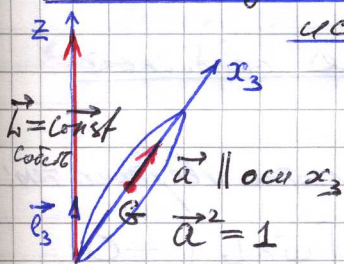 ис
z
x₃
L⃗ = const
собств
a⃗ || оси x₃
e⃗₃
G
a⃗² = 1